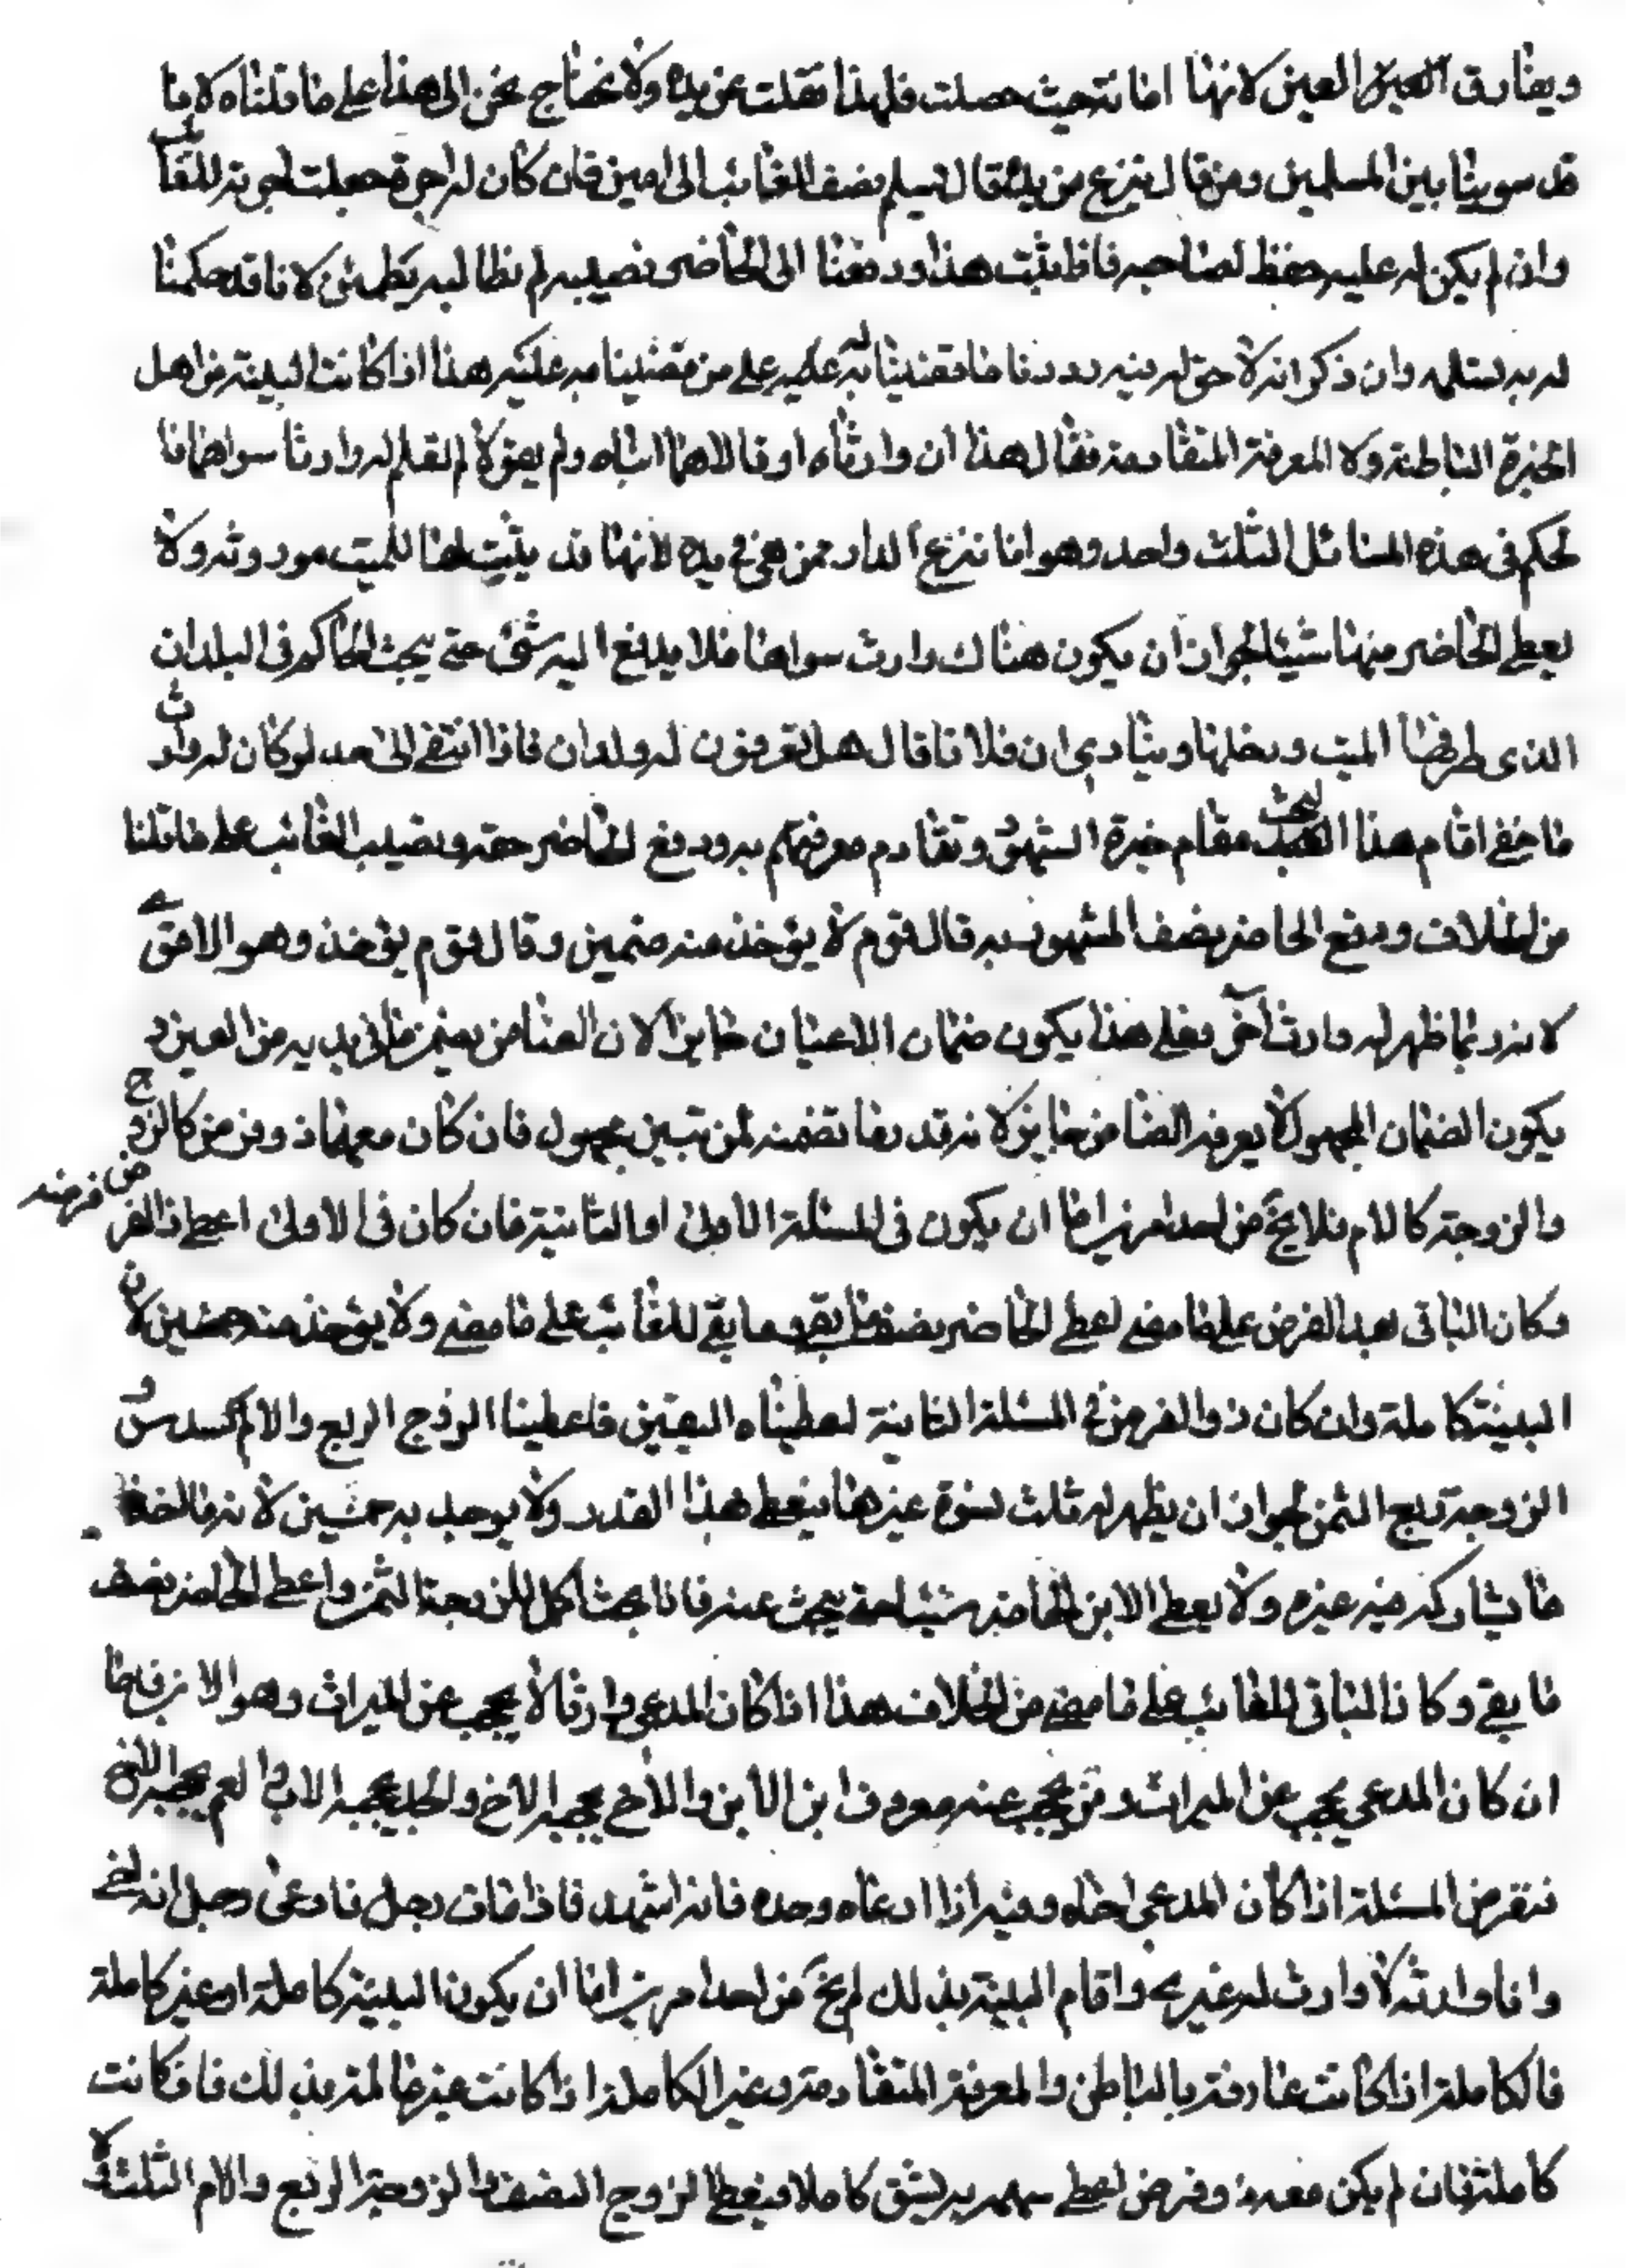 ويفارق العين العين لانها امانة حيث حصلت فلهذا نقلت عن يده ولا نحتاج نحن الى هذا على ما قلناه لانا
قد سوينا بين المسلمين ومن قال ينزع من يده قال يسلم نصف الغائب الى امين فان كان له اجرة جعلت اجرته للغائب
وان لم يكن له عليه حفظ لصاحبه فاذا ثبت هذا ودفعنا الى الحاضر نصيبه لم نطالبه بضمين لانا قد حكمنا
له به وان ذكر انه لا حق له فيه رددنا ما قضينا له عليه على من قضينا به عليه هذا اذا كانت البينة من اهل
الخبرة الباطنة ولا المعرفة المتقادمة فقال هذان وارثاه او قالا هما ابناه ولم يقولا لم نعلم له وارثا سواهما فا
لحكم فى هذه المسائل الثلث واحد وهو انا ننزع الدار ممن هى فى يده لانها قد ثبت انها للميت موروثه ولا
يعطى الحاضر منها شيئا لجواز ان يكون هناك وارث سواهما فلا يدفع اليه شئ حتى يبحث الحاكم فى البلدان
الذى طرقها الميت ودخلها وينادى ان فلانا قال هل تعرفون له ولدا فاذا انتهى الى حد لو كان له وارث
ما خفى اقام هذا البحث مقام خبرة الشهود وتقادم معرفتهم به ودفع الى الحاضر حقه ونصيب الغائب على ما قلنا
من الخلاف ودفع الى الحاضر نصف المشهود به قال قوم لا يؤخذ منه ضمين وقال قوم يؤخذ وهو الاقوى
لانه ربما ظهر له وارث اخر فعلى هذا يكون ضمان الاعيان جايزا لان الضامن يضمن ما فى يديه من العين و
يكون الضمان المجهول لا يعرفه الضامن جايز لانه قد ربما تضمنه لمن تبين مجهول فان كان معهما ذو فرض كالزوج
والزوجة كالام فلا يخ من احد امرين اما ان يكون فى المسئلة الاولى او الثانية فان كان فى الاولى اعطى ذا الفرض فرضه
وكان الباقى بعد الفرض على ما مضى يعطى الحاضر نصف ما بقى وما بقى للغائب على ما مضى ولا يؤخذ منه ضمين لان
البينة كاملة وان كان ذو الفرض فى المسئلة الثانية اعطيناه اليقين فاعطينا الزوج الربع والام السدس و
الزوجة ربع الثمن لجواز ان يظهر له ثلث نسوة غيرها فيعطى هذا القدر ولا يوجد به ضمين لانه ما اخذ
ما يشاركه فيه غيره ولا يعطى الابن الحاضر شيئا حتى يبحث عنه فاذا بحث اكمل للزوجة الثمن واعطى الحاضر نصف
ما بقى وكان الباقى للغائب على ما مضى من الخلاف هذا اذا كان المدعى وارثا لا يحجب عن الميراث وهو الابن فاما
ان كان المدعى يحجب عن الميراث ومن يحجب عنه معروف ابن الابن والاخ يحجبه الاخ والجد يحجبه الاب والعم يحجبه الاخ
نفرض المسئلة اذا كان المدعى اخاه وفيه اذا ادعاه وحده فانه اشهد فاذا مات رجل فادعى رجل انه اخى
وانا وارثه لا وارث له غيرى واقام البينة بذلك لم يخ من احد امرين اما ان يكون البينة كاملة او غير كاملة
فالكاملة اذا كانت عارفة بالباطن والمعرفة المتقادمة وغير الكاملة اذا كانت غير عالمة بذلك فان كانت
كاملة فان لم يكن معه ذو فرض اعطى كاملا فيعطى الزوج النصف والزوجة الربع والام الثلث لا